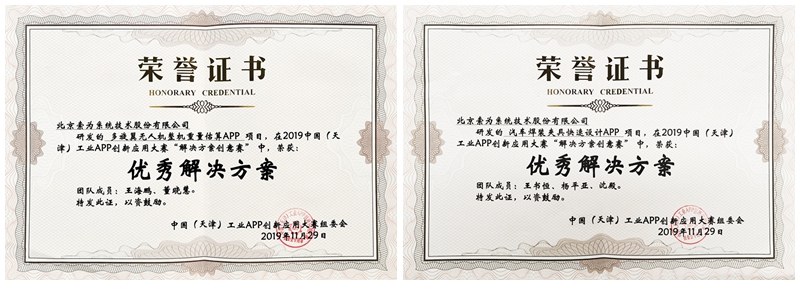 荣誉证书
HONORARY CREDENTIAL
北京索为系统技术股份有限公司
研发的 多旋翼无人机整机重量估算APP 项目，在2019中国（天
津）工业APP创新应用大赛“解决方案创意赛”中，荣获：
优秀解决方案
团队成员：王海鹏、董晓慧。
特发此证，以资鼓励。
中国（天津）工业APP创新应用大赛组委会
2019年11月29日
荣誉证书
HONORARY CREDENTIAL
北京索为系统技术股份有限公司
研发的 汽车焊装夹具快速设计APP 项目，在2019中国（天
津）工业APP创新应用大赛“解决方案创意赛”中，荣获：
优秀解决方案
团队成员：王书恒、杨平亚、沈殿。
特发此证，以资鼓励。
中国（天津）工业APP创新应用大赛组委会
2019年11月29日